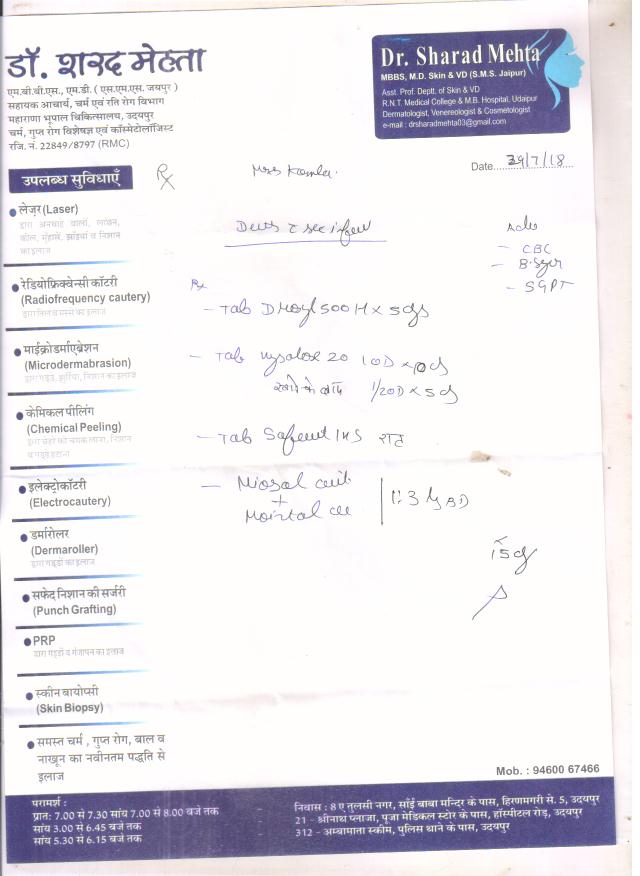 डॉ. शरद मेहता
एम.बी.बी.एस., एम.डी. ( एस.एम.एस. जयपुर )
सहायक आचार्य, चर्म एवं रति रोग विभाग
महाराणा भूपाल चिकित्सालय, उदयपुर
चर्म, गुप्त रोग विशेषज्ञ एवं कॉस्मेटोलॉजिस्ट
रजि. नं. 22849/8797 (RMC)
Dr. Sharad Mehta
MBBS, M.D. Skin & VD (S.M.S. Jaipur)
Asst. Prof. Deptt. of Skin & VD
R.N.T. Medical College & M.B. Hospital, Udaipur
Dermatologist, Venereologist & Cosmetologist
e-mail : drsharadmehta03@gmail.com
Date 29/7/18
Rx
Mrs Kamla
CBC
B. Sugar
SGPT
Rx
- Tab 500 x 5
- Tab 20 1OD x
खाने के बाद 1/2OD x 5
- Tab 1HS रात
- 
+
1:3 BD
x
15
उपलब्ध सुविधाएँ
लेज़र (Laser)
द्वारा अनचाहे बालों, लांछन,
कील, मुंहासे, झाँइयां व निशान
का इलाज
रेडियोफ्रिक्वेन्सी कॉटरी
(Radiofrequency cautery)
द्वारा तिल व मस्से का इलाज
माईक्रोडर्माएब्रेशन
(Microdermabrasion)
द्वारा गड्ढे, झुर्रियां, निशान का इलाज
केमिकल पीलिंग
(Chemical Peeling)
द्वारा चेहरे की चमक लाना, निशान
व गड्ढे हटाना
इलेक्ट्रोकॉटरी
(Electrocautery)
डर्मारोलर
(Dermaroller)
द्वारा गड्ढों का इलाज
सफेद निशान की सर्जरी
(Punch Grafting)
PRP
द्वारा गड्ढों व गंजापन का इलाज
स्कीन बायोप्सी
(Skin Biopsy)
समस्त चर्म , गुप्त रोग, बाल व
नाखून का नवीनतम पद्धति से
इलाज
Mob. : 94600 67466
परामर्श :
प्रात: 7.00 से 7.30 सांय 7.00 से 8.00 बजे तक
सांय 3.00 से 6.45 बजे तक
सांय 5.30 से 6.15 बजे तक
निवास : 8 ए तुलसी नगर, साँई बाबा मन्दिर के पास, हिरणमगरी से. 5, उदयपुर
21 - श्रीनाथ प्लाजा, पूजा मेडिकल स्टोर के पास, हॉस्पीटल रोड़, उदयपुर
312 - अम्बामाता स्कीम, पुलिस थाने के पास, उदयपुर